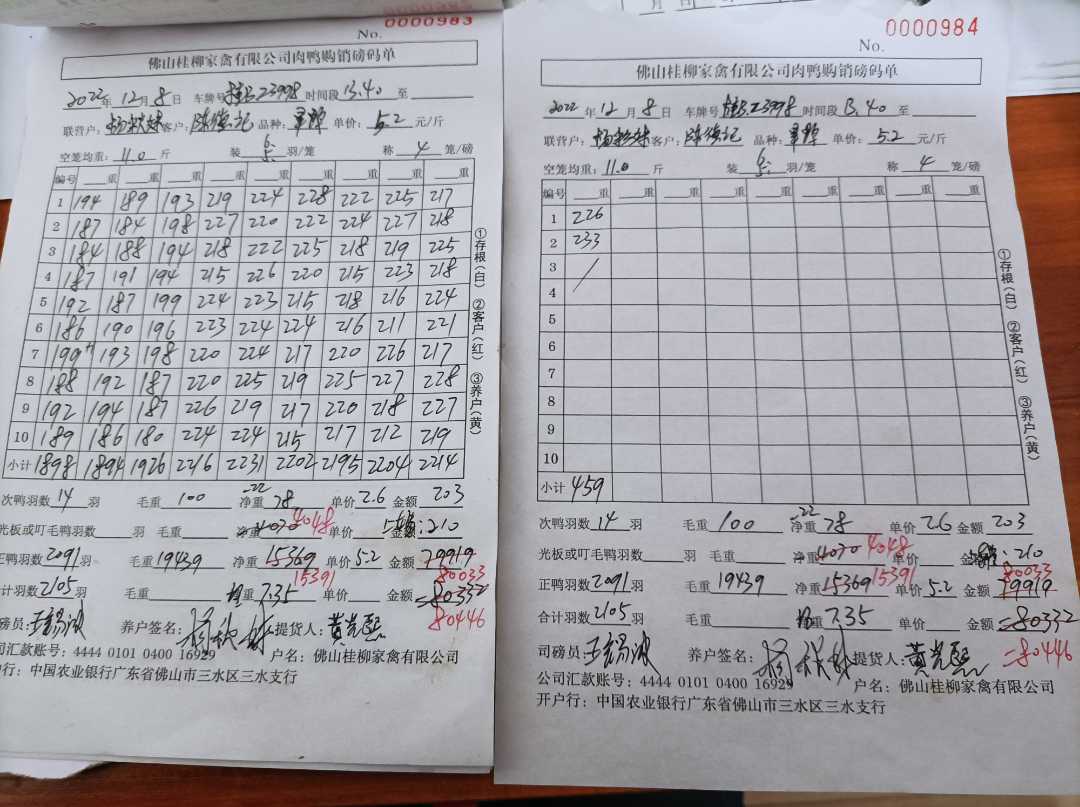 0000983
No.
佛山桂柳家禽有限公司肉鸭购销磅码单
2022年 12月 8日 车牌号 Z3998 时间段 13.40 至
联营户: 客户: 品种: 单价: 5.2 元/斤
空笼均重: 11.0 斤 装 羽/笼 称 4 笼/磅
编号 重 重 重 重 重 重 重 重 重
1 194 189 193 219 224 228 222 225 217
2 187 184 198 227 220 222 224 227 218
3 184 188 194 218 222 225 218 219 225
4 187 191 194 215 226 220 215 223 218
5 192 187 199 224 223 215 218 216 224
6 186 190 196 223 224 224 216 211 221
7 199 193 198 220 224 217 220 226 217
8 188 192 187 220 225 219 225 227 228
9 192 194 187 226 219 217 220 218 227
10 189 186 180 224 224 215 217 212 219
小计 1898 1894 1926 2216 2231 2202 2195 2204 2214
①存根(白) ②客户(红) ③养户(黄)
次鸭羽数 14 羽 毛重 100 净重 -22 78 单价 2.6 金额 203
光板或叮毛鸭羽数 羽 毛重 净重 4070 4048 单价 金额 210
正鸭羽数 2091 羽 毛重 19439 净重 15369 15391 单价 5.2 金额 79919 80033
计羽数 2105 羽 毛重 重 7.35 单价 金额 =80332 80446
磅员: 养户签名: 提货人: 黄
司汇款账号: 4444 0101 0400 16929 户名: 佛山桂柳家禽有限公司
行: 中国农业银行广东省佛山市三水区三水支行
0000984
No.
佛山桂柳家禽有限公司肉鸭购销磅码单
2022年 12月 8日 车牌号 Z3998 时间段 13.40 至
联营户: 客户: 品种: 单价: 5.2 元/斤
空笼均重: 11.0 斤 装 羽/笼 称 4 笼/磅
编号 重 重 重 重 重 重 重 重 重
1 226
2 233
3
4
5
6
7
8
9
10
小计 459
①存根(白) ②客户(红) ③养户(黄)
次鸭羽数 14 羽 毛重 100 净重 -22 78 单价 2.6 金额 203
光板或叮毛鸭羽数 羽 毛重 净重 4070 4048 单价 金额 210
正鸭羽数 2091 羽 毛重 19439 净重 15369 15391 单价 5.2 金额 79919 80033
合计羽数 2105 羽 毛重 重 7.35 单价 金额 =80332
司磅员: 养户签名: 提货人: 黄 =80446
公司汇款账号: 4444 0101 0400 16929 户名: 佛山桂柳家禽有限公司
开户行: 中国农业银行广东省佛山市三水区三水支行